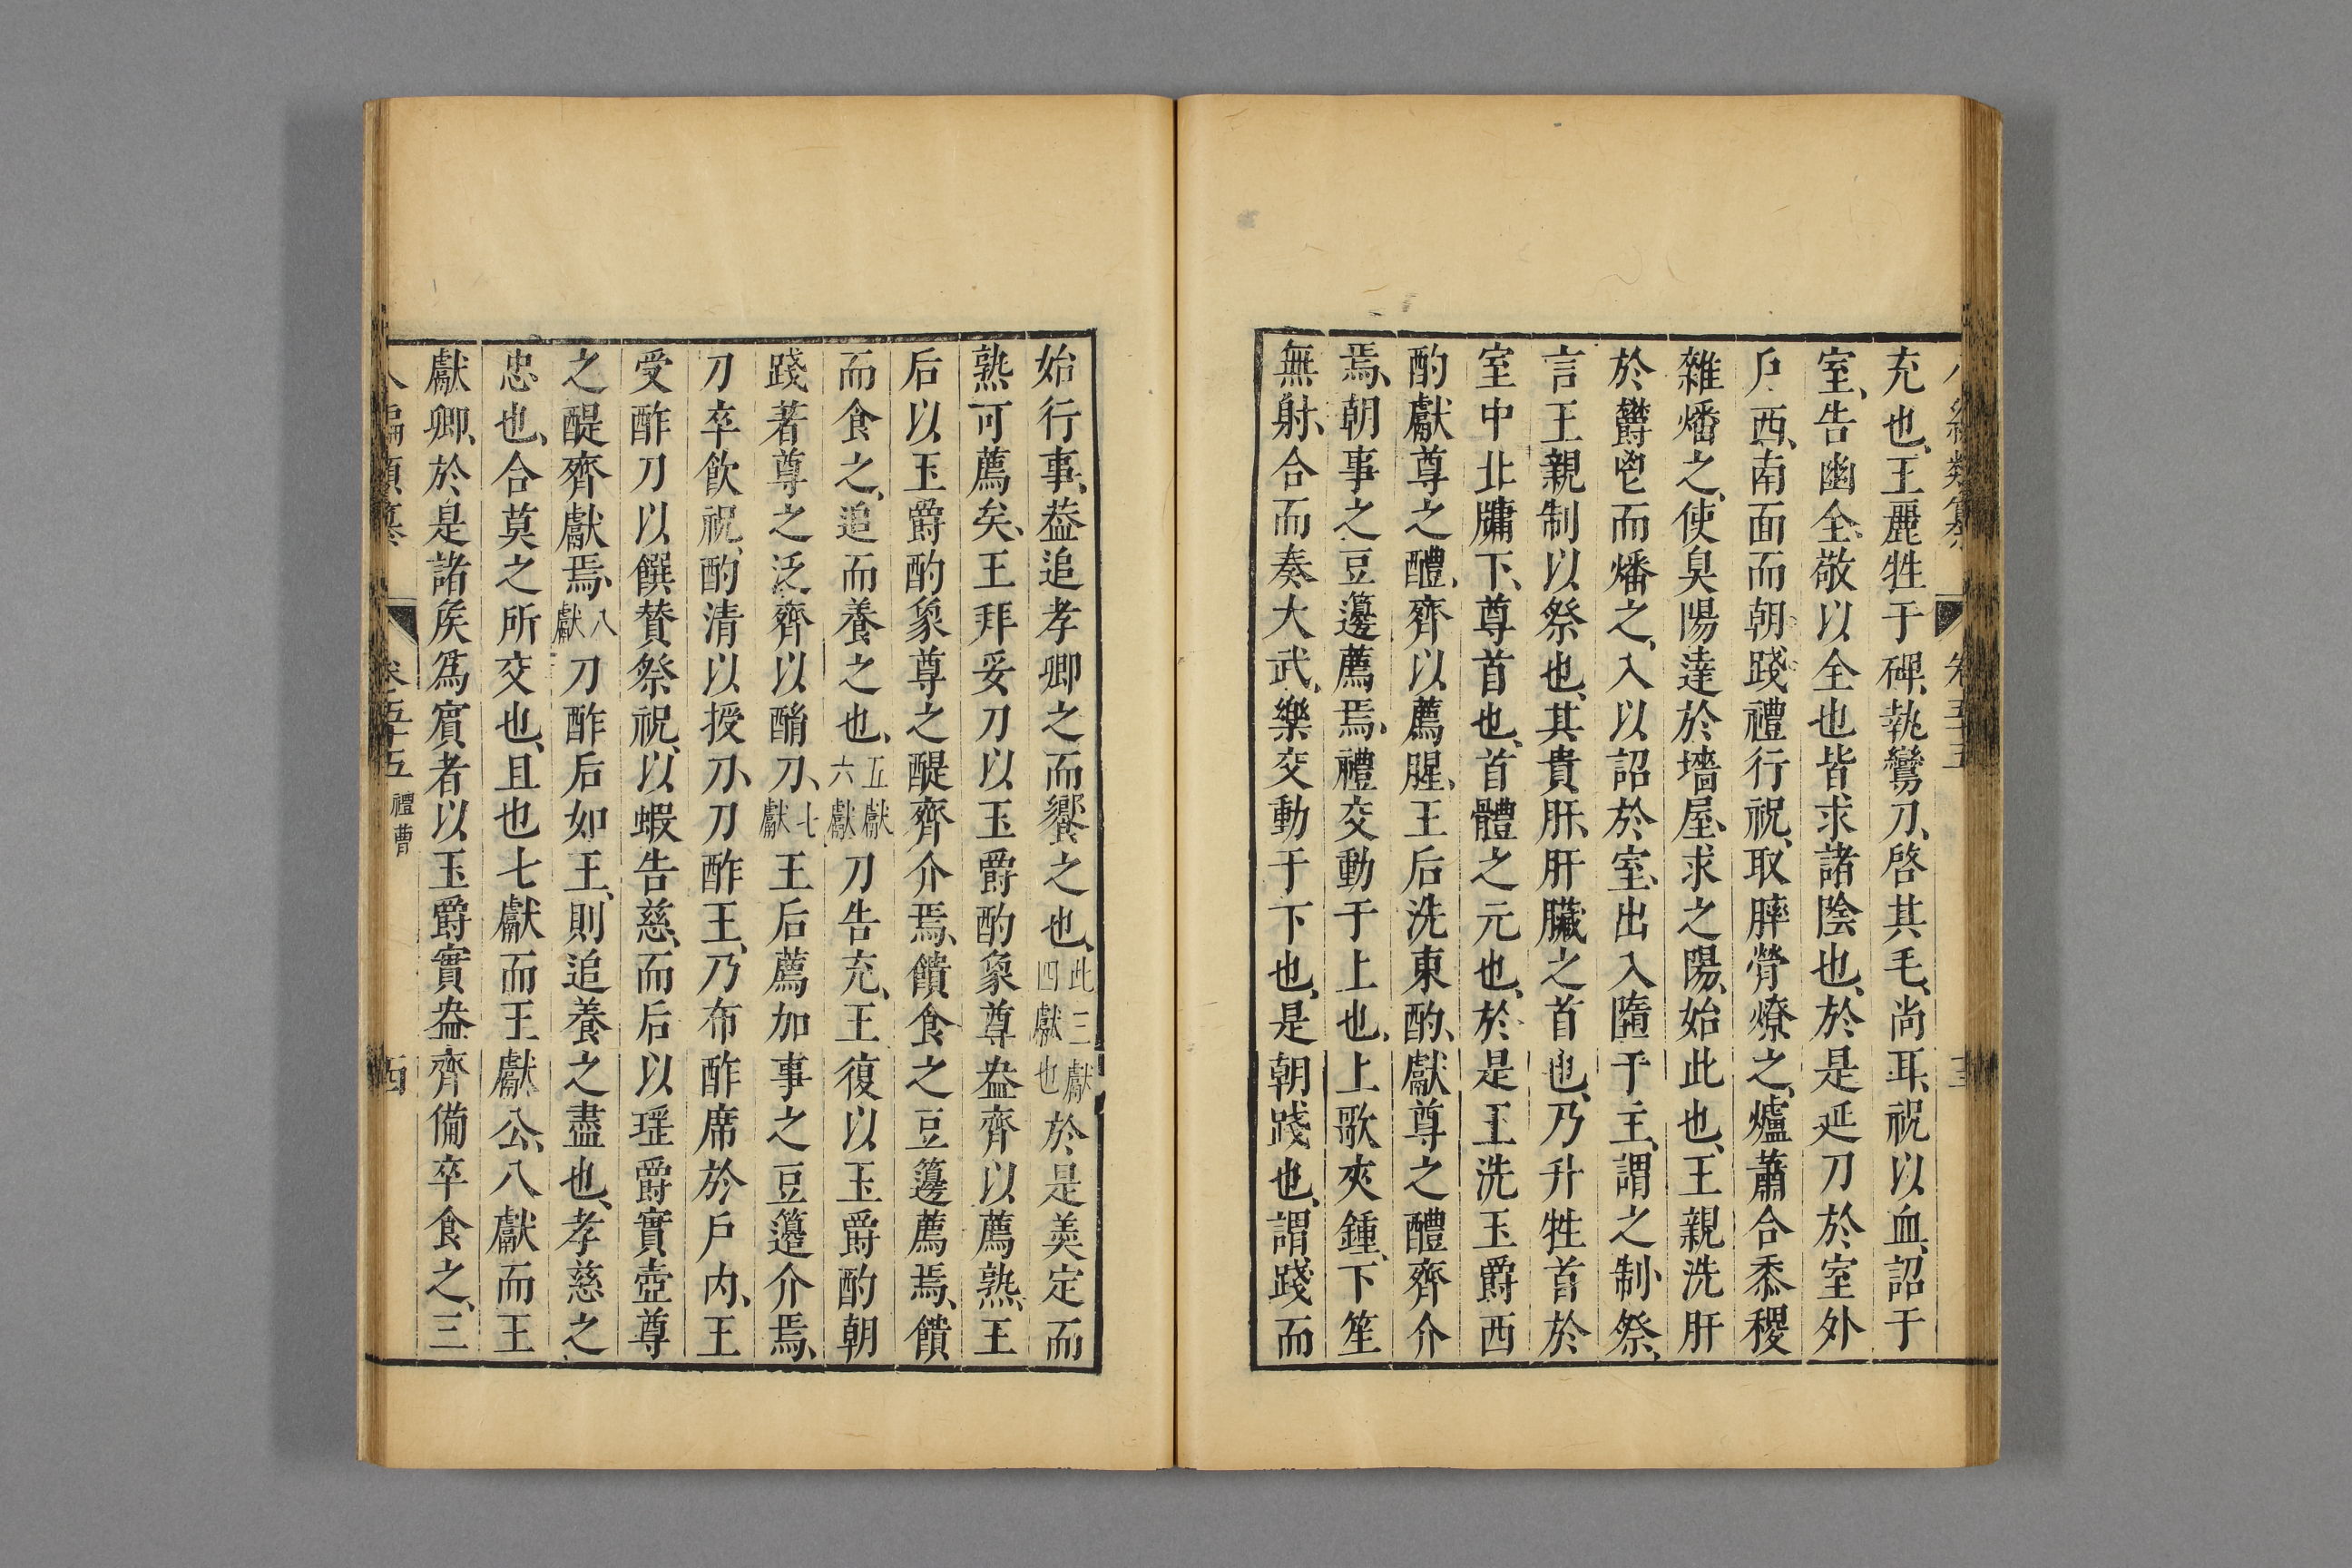 充也、王麗牲于碑、執鸞刀、啓其毛、尚耳、祝以血、詔于
室、告幽全、敬以全也皆求諸陰也、於是延刀於室外
戶西、南面而朝踐禮行祝、取膟膋燎之、爐蕭合黍稷
雜燔之、使臭陽達於墻屋、求之陽、始此也、王親洗肝
於鬱鬯而燔之、入以詔於室、出入隋于主、謂之制祭、
言王親制以祭也、其貴肝、肝臟之首也、乃升牲首於
室中北牗下、尊首也、首體之元也、於是王洗玉爵西
酌獻尊之醴、齊以薦腥、王后洗東酌、獻尊之醴齊介
焉、朝事之豆籩薦焉、禮交動于上也、上歌夾鍾、下笙
無射、合而奏大武、樂交動于下也、是朝踐也、謂踐而
始行事、葢追孝卿之而饗之也、此三獻四獻也於是羙定而
熟可薦矣、王拜妥刀以玉爵酌象尊盎齊以薦熟、王
后以玉爵酌象尊之醍齊介焉、饋食之豆籩薦焉、饋
而食之、追而養之也、五獻六獻刀告充、王復以玉爵酌朝
踐著尊之泛齊以酳刀、七獻王后薦加事之豆籩介焉、
刀卒飲祝、酌清以授刀、刀酢王、乃布酢席於戶內、王
受酢刀以饌贊祭祝、以嘏告慈、而后以瑤爵實壺尊
之醍齊獻焉、八獻刀酢后如王、則追養之盡也、孝慈之
忠也、合莫之所交也、且也七獻而王獻公、八獻而王
獻卿、於是諸矦爲賓者以玉爵實盎齊備卒食之、三
八編類纂 卷五十五 禮曹 四